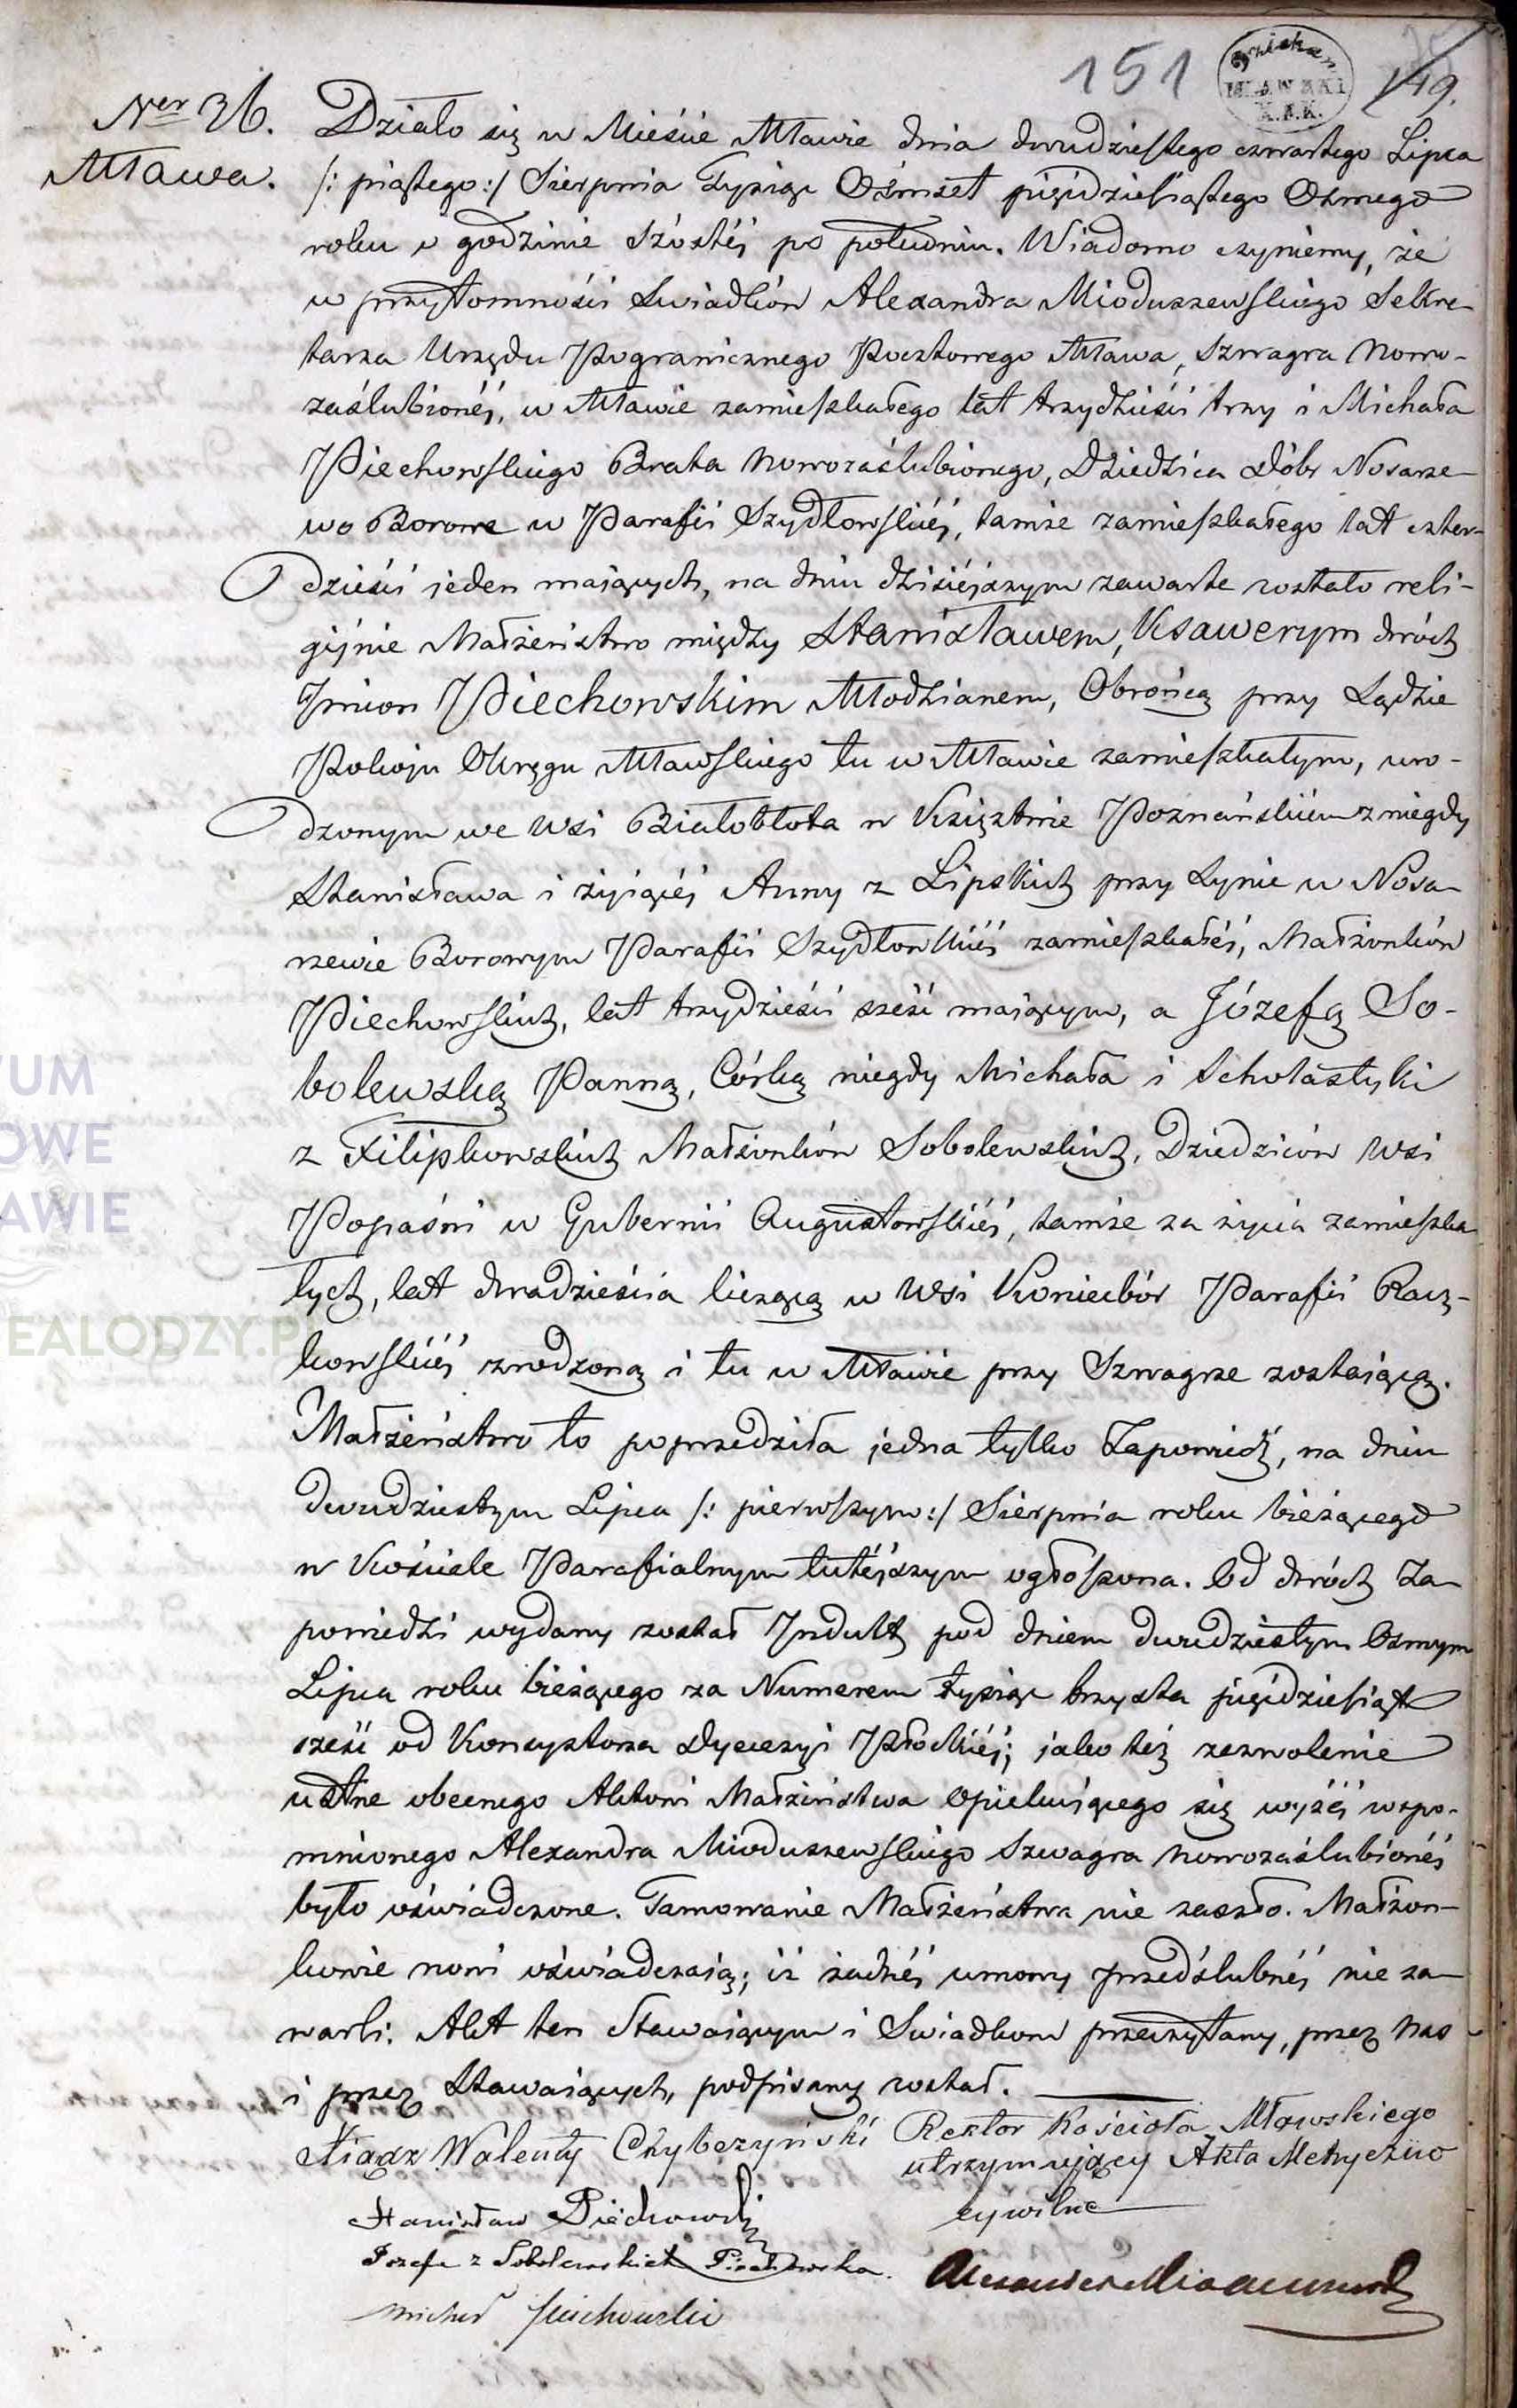 151
149.
Ner 36.
Mława.
Działo się w Mieście Mławie dnia dwudziestego czwartego Lipca
/: piątego :/ Sierpnia Tysiąc Ośmset pięćdziesiątego Osmego
roku o godzinie szóstéj po południu. Wiadomo czyniemy, że
w przytomności Swiadków Alexandra Mioduszewskiego Sekre-
tarza Urzędu Pogranicznego Pocztowego Mława, Szwagra Nowo-
zaślubionéj, w Mławie zamieszkałego lat trzydzieści trzy i Michała
Piechowskiego Brata Nowozaślubionego, Dziedzica Dóbr Nosarze-
wo Borowe w Parafii Szydłowskiéj, tamże zamieszkałego lat czter-
dzieści jeden mających, na dniu dzisiéjszym zawarte zostało reli-
gijnie Małżeństwo między Stanisławem, Ksawerym dwóch
Imion Piechowskim Młodzianem, Obrońcą przy Sądzie
Pokoju Okręgu Mławskiego tu w Mławie zamieszkałym, uro-
dzonym we wsi Białobłota w Księztwie Poznańskiém z niegdy
Stanisława i żyjącéj Anny z Lipskich przy Synie w Nosa-
rzewie Borowym Parafii Szydłowskiéj zamieszkałéj, Małżonków
Piechowskich, lat trzydzieści sześć mającym, a Józefą So-
bolewską Panną, Córką niegdy Michała i Scholastyki
z Filipkowskich Małżonków Sobolewskich, Dziedziców wsi
Popaśni w Gubernii Augustowskiéj, tamże za życia zamieszka
łych, lat dwadzieścia liczącą w wsi Koniecbór Parafii Racz-
kowskiéj zrodzoną i tu w Mławie przy Szwagrze zostającą.
Małżeństwo to poprzedziła jedna tylko Zapowiedź, na dniu
dwudziestym Lipca /: pierwszym :/ Sierpnia roku bieżącego
w Kościele Parafialnym tutéjszym ogłoszona. Od dwóch Za-
powiedzi wydany został Indult pod dniem dwudziestym Osmym
Lipca roku bieżącego za Numerem tysiąc trzysta pięćdziesiąt
sześć od Konsystorza Dyecezyi Płockiéj; jako też zezwolenie
ustne obecnego Aktowi Małżeństwa Opiekującego się wyżéj wspo-
mnionego Alexandra Mioduszewskiego Szwagra Nowozaślubionéj
było oświadczone. Tamowanie Małżeństwa nie zaszło. Małżon-
kowie nowi oświadczają; iż żadnéj umowy przedślubnéj nie za-
warli. Akt ten Stawającym i Swiadkom przeczytany, przez Nas
i przez Stawających, podpisany został.
Xiądz Walenty Chybczyński Rektor Kościoła Mławskiego
utrzymujący Akta Metryczno
cywilne
Stanisław Piechowski
Józefa z Sobolewskich Piechowska.
Michał Piechowski
Alexander Mioduszewski